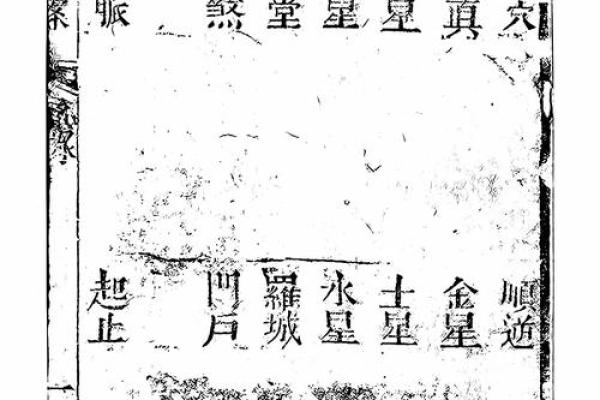 穴 順逆
眞 金星
星 土星
星 水星
堂 羅城
煞 門戶
脈 起止